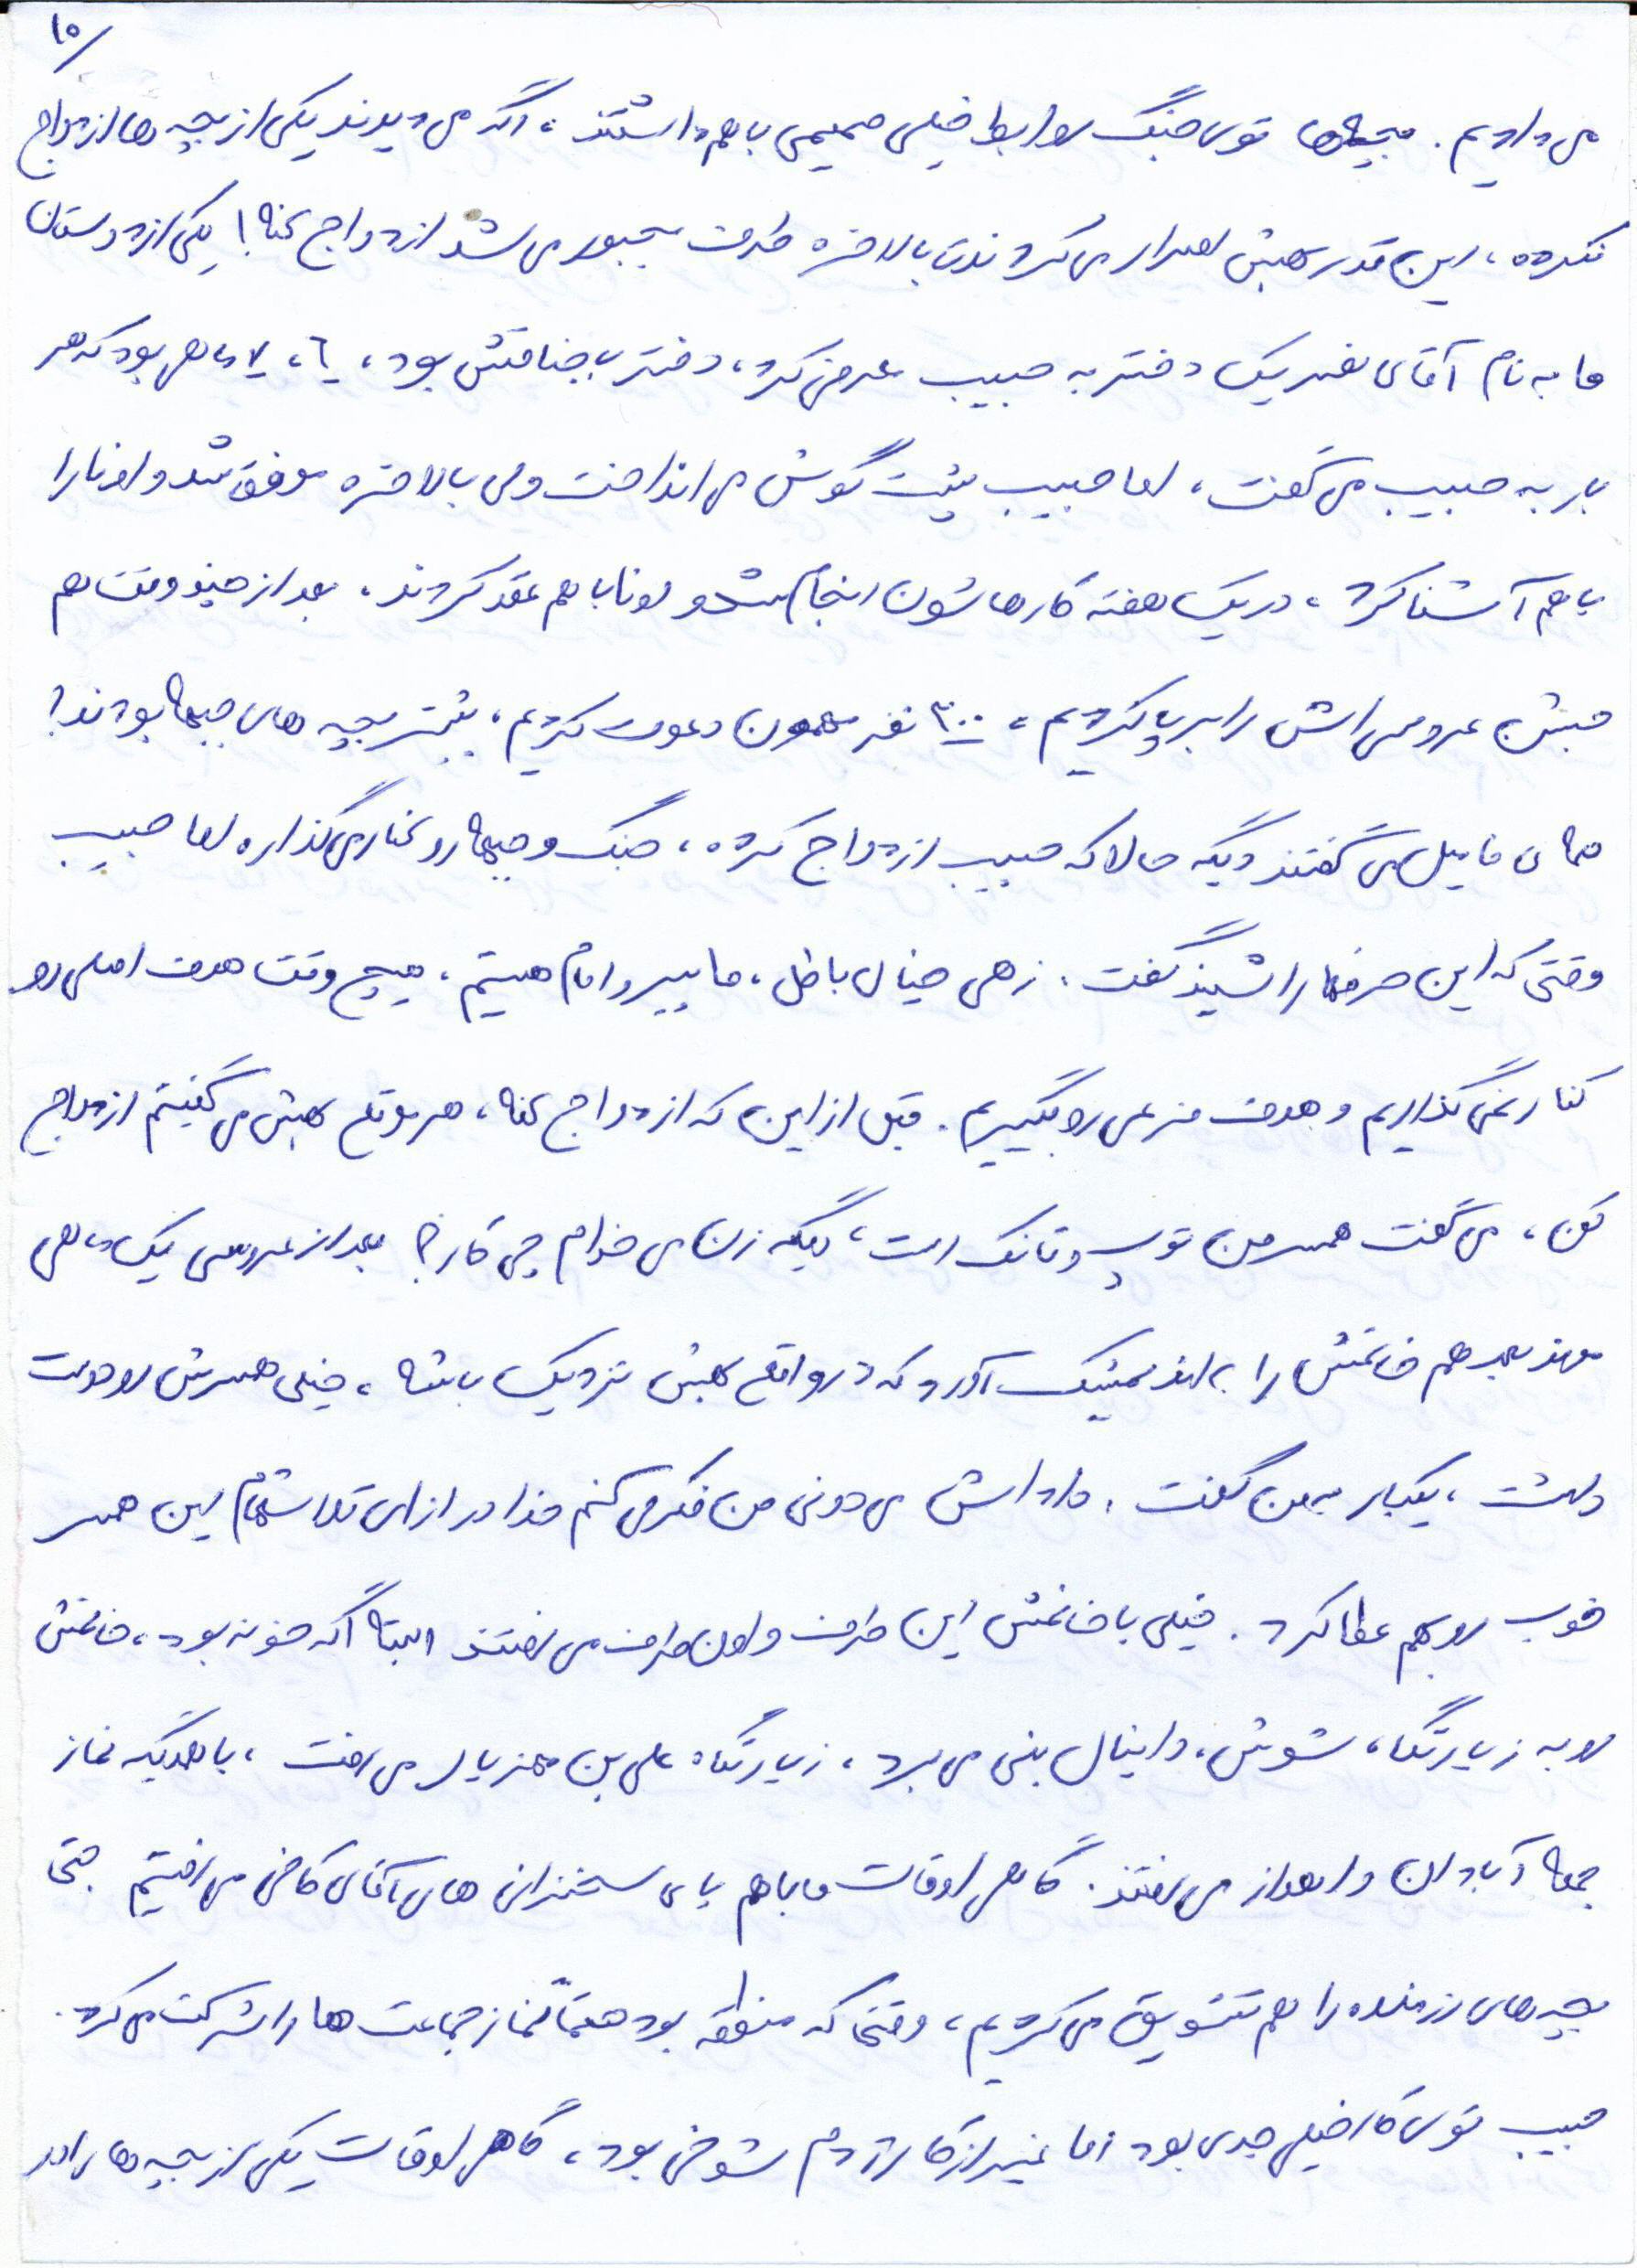 ۱۰/
می دادیم. بچه‌ها توی جنگ روابط خیلی صمیمی باهم داشتند، اگه می دیدند یکی از بچه ها ازدواج
نکرده، این قدر بهش اصرار می کردند تا بالاخره طرف مجبور می شد ازدواج کنه! یکی از دوستان
ما به نام آقای نصر یک دختر به حبیب معرفی کرد، دختر باجناقش بود، ۶، ۷ ماهی بود که هر
بار به حبیب می گفت، اما حبیب پشت گوش می انداخت ولی بالاخره موفق شد و اونا را
باهم آشنا کرد، در یک هفته کارهاشون انجام شد و اونا باهم عقد کردند. بعد از چند وقت هم
جشن عروسی اش را برپا کردیم، ۳۰۰ نفر مهمون دعوت کردیم، بیشتر بچه های جبهه بودند!
همه ی فامیل می گفتند دیگه حالا که حبیب ازدواج کرده، جنگ و جبهه رو کنار می گذاره اما حبیب
وقتی که این حرفها را شنید گفت: زهی خیال باطل، ما پیرو امام هستیم، هیچ وقت هدف اصلی رو
کنار نمی گذاریم و هدف فرعی رو بگیریم. قبل از این که ازدواج کنه، هر موقع بهش می گفتیم ازدواج
کن، می گفت همسر من توپ و تانک است، دیگه زن می خوام چی کار؟ بعد از عروسی یک ماهی
روز بعد هم خانمش را به اندیمشک آورد که در واقع بهش نزدیک باشه، خیلی همسرش رو دوست
داشت، یکبار به من گفت: داداش می دونی من فکر می کنم خدا در ازای تلاشهام این همسر
خوب رو بهم عطا کرد. خیلی با خانمش این طرف و اون طرف می رفتند البته اگه خونه بود، خانمش
رو به زیارتگاه، شوش، دانیال نبی می برد، زیارتگاه علی بن مهزیار می رفت، باهمدیگه نماز
جمعه آبادان و اهواز می رفتند. گاهی اوقات ما باهم پای سخنرانی های آقای کافی می رفتیم حتی
بچه های رزمنده را هم تشویق می کردیم، وقتی که منطقه بود حتماً نماز جماعت ها را شرکت می کرد.
حبیب توی کار خیلی جدی بود اما غیر از کار آدم شوخی بود، گاهی اوقات یکی از بچه ها را در